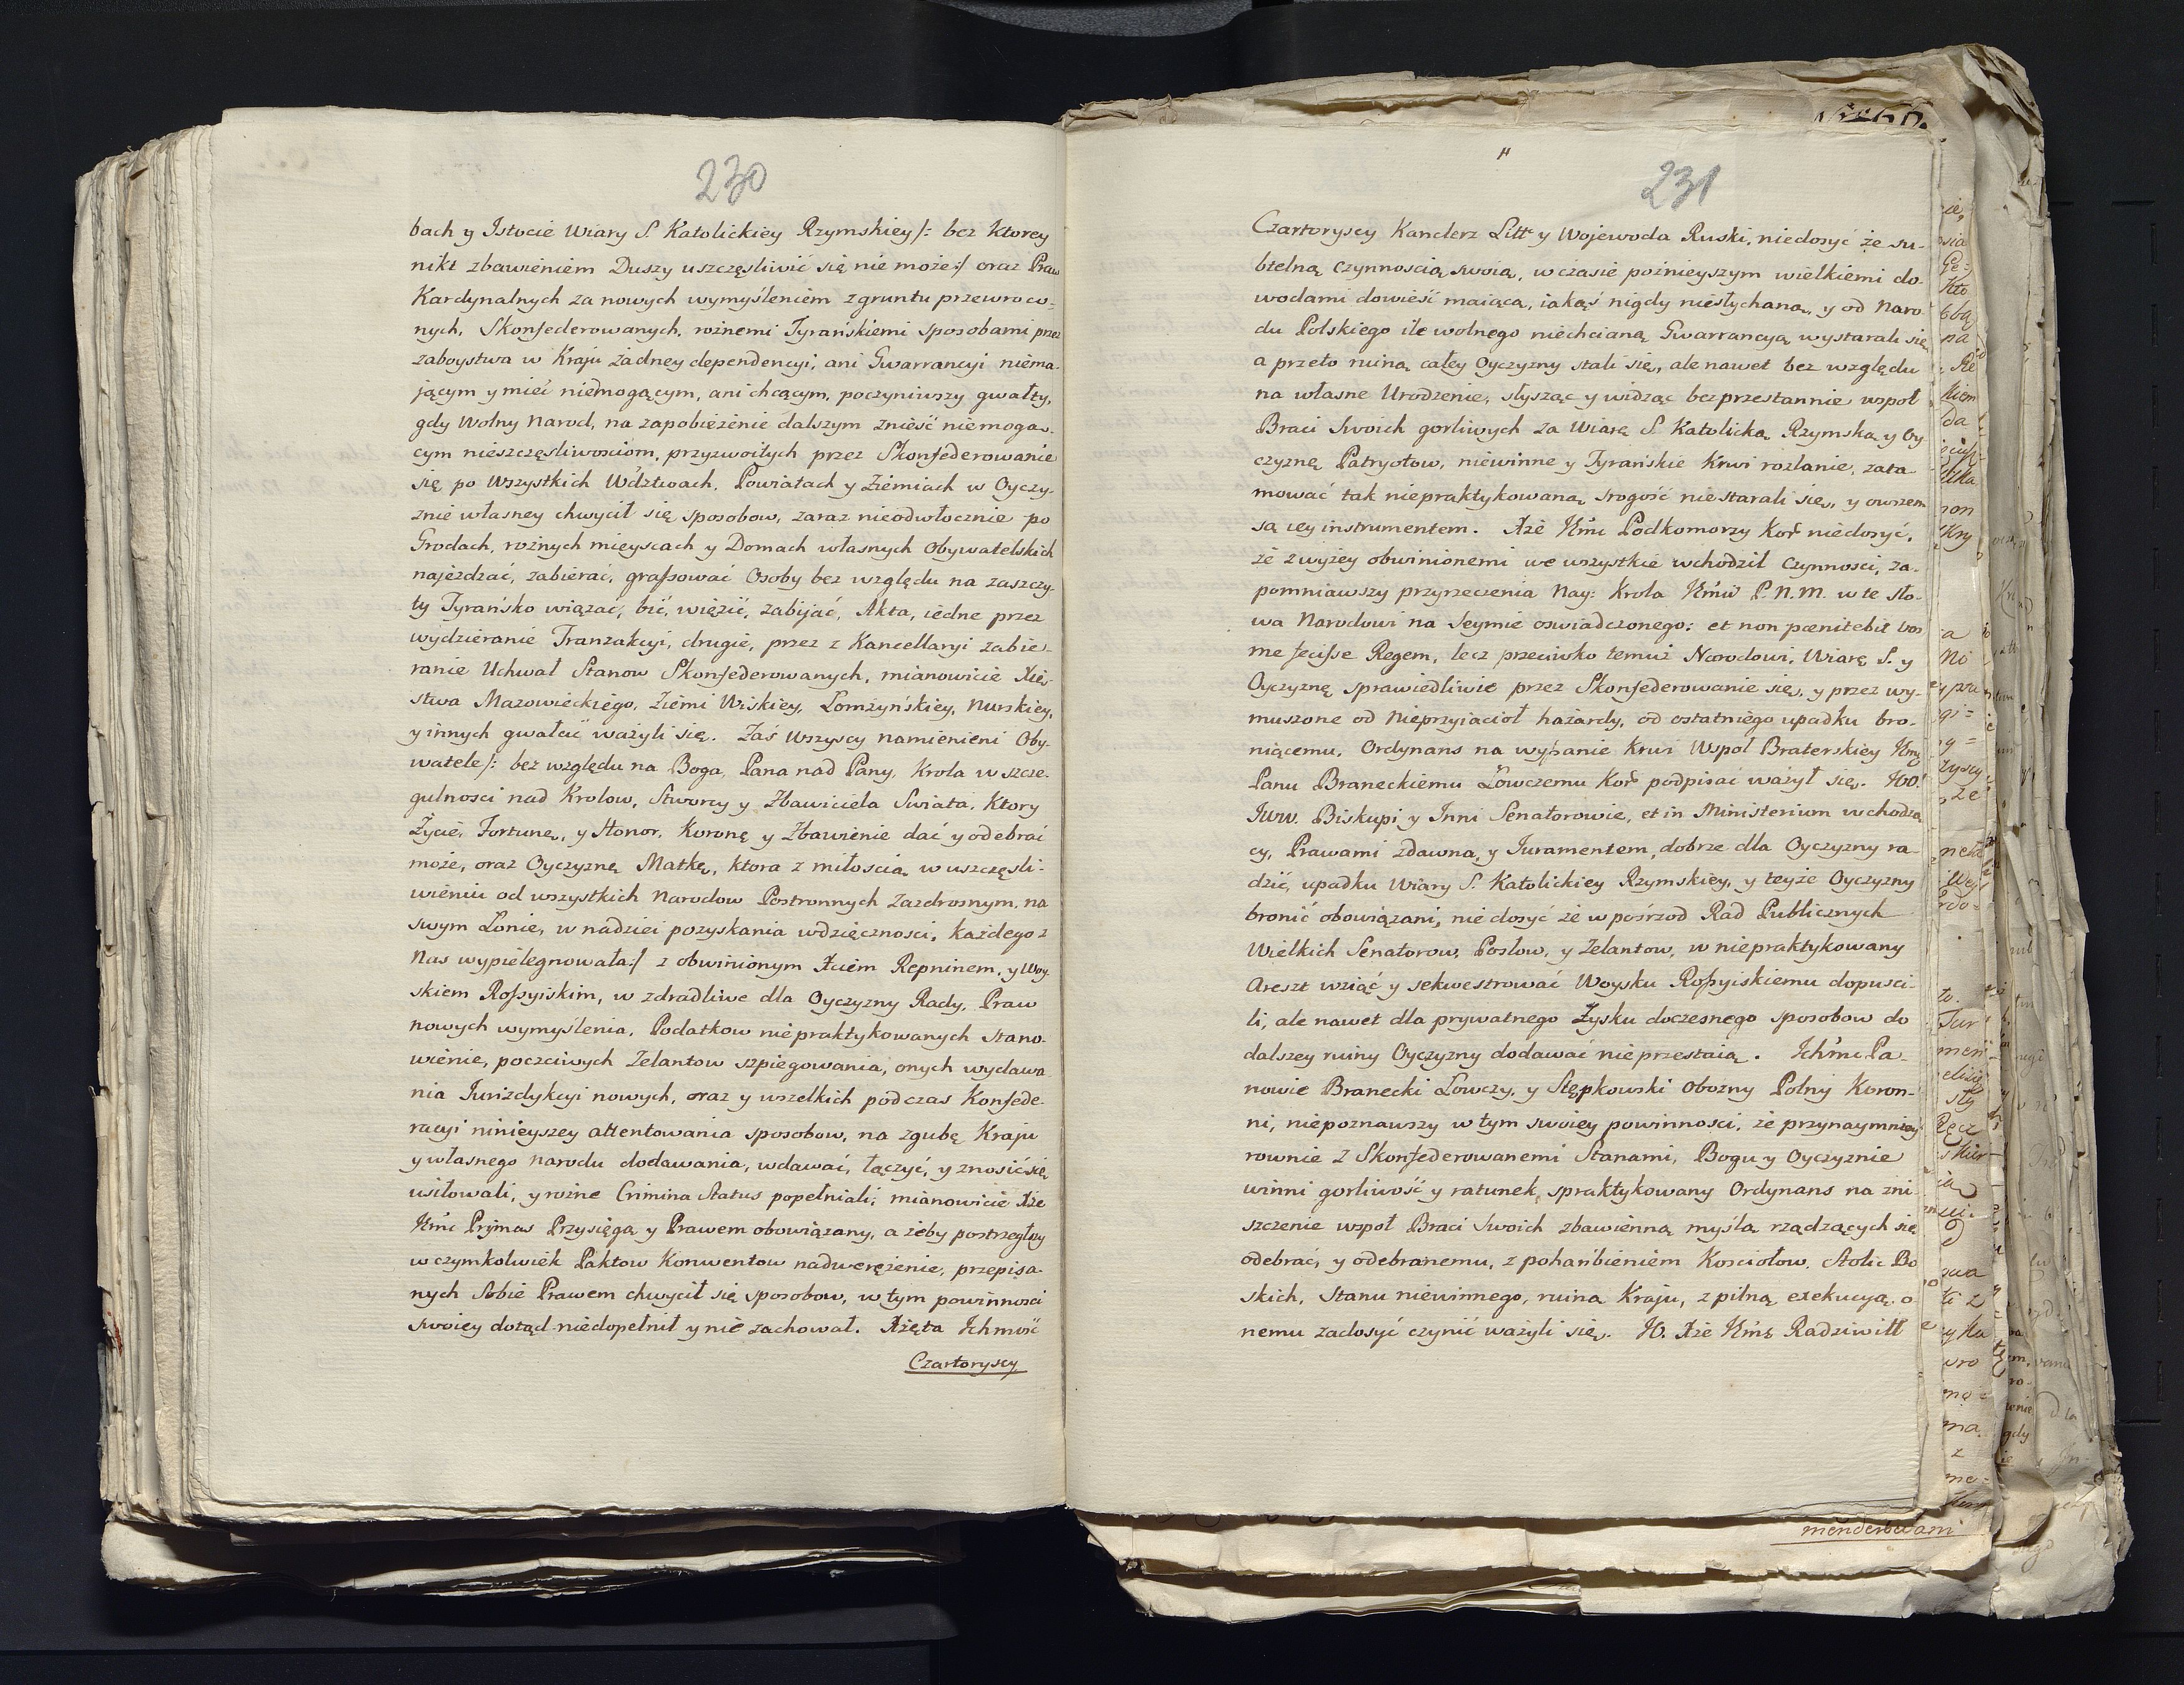 230
bach y Istocie Wiary S. Katolickiey Rzymskiey/: bez ktorey
nikt zbawieniem Duszy uszczęsliwić się nie może:/ oraz Praw
Kardynalnych za nowych wymyśleniem z gruntu przewroco-
nych, Skonfederowanych, rożnemi Tyrańskiemi sposobami przez
zaboystwa w Kraju żadney dependencyi, ani Gwarrancyi niema-
jącym y mieć niemogącym, ani chcącym, poczyniwszy gwałty,
gdy Wolny Narod, na zapobieżenie dalszym znieść niemogą-
cym nieszczęsliwosciom, przyzwoitych przez Skonfederowanie
się po Wszystkich Wdztwach, Powiatach y Ziemiach w Oyczy-
znie własney chwycił się sposobow, zaraz nieodwłocznie po
Grodach, rożnych mieyscach y Domach własnych Obywatelskich
najeżdzać, zabierać, grassować Osoby bez względu na zaszczy-
ty Tyrańsko wiązać, bić, więzić, zabijać, Akta, iedne przez
wydzieranie Tranzakcyi, drugie, przez z Kancellaryi zabie-
ranie Uchwał Stanow Skonfederowanych, mianowicie Xię-
stwa Mazowieckiego, Ziemi Wiskiey, Lomżyńskiey, Nurskiey,
y innych gwałcić ważyli się. Zaś Wszyscy namienieni Oby-
watele/: bez względu na Boga, Pana nad Pany, Krola w szcze-
gulnosci nad Krolow, Stworcy y Zbawiciela Swiata, Ktory
Życie, Fortunę, y Honor, Koronę y Zbawienie dać y odebrać
może, oraz Oyczyznę Matkę, ktora z miłoscią w uszczęsli-
wieniu od wszystkich Narodow Postronnych Zazdrosnym, na
swym Łonie, w nadziei pozyskania wdzięcznosci, każdego z
Nas wypielęgnowała:/ z obwinionym Xciem Repninem, y Woy-
skiem Rossyiskim, w zdradliwe dla Oyczyzny Rady, Praw
nowych wymyślenia, Podatkow niepraktykowanych Stano-
wienie, poczciwych Zelantow szpiegowania, onych wydawa-
nia Jurizdykcyi nowych, oraz y wszelkich podczas Konfede-
racyi ninieyszey attentowania sposobow, na zgubę Kraju
y własnego Narodu dodawania, wdawać, łączyć, y znosić się
usiłowali, y rożne Crimina Status popełniali; mianowicie Xże
Jmc Prymas Przysięgą y Prawem obowiązany, ażeby postrzegłszy
w czymkolwiek Paktow Konwentow nadwerężenie, przepisa-
nych Sobie Prawem chwycił się sposobow, w tym powinnosci
swoiey dotąd niedopełnił y nie zachował. Xżęta Ichmość
Czartoryscy
231
Czartoryscy Kanclerz Litt y Wojewoda Ruski, niedosyć że su-
btelną czynnoscią swoią, w czasie poźnieyszym wielkiemi do-
wodami dowieść maiącą, iakąś nigdy niesłychaną, y od Naro-
du Polskiego ile wolnego niechcianą Gwarrancyą wystarali się
a przeto ruiną całey Oyczyzny stali się, ale nawet bez względu
na własne Urodzenie, słysząc y widząc bezprzestannie wspoł
Braci Swoich gorliwych za Wiarę S. Katolicką Rzymską y Oy-
czyznę Patryotow, niewinne y Tyrańskie Krwi rozlanie, zata-
mować tak niepraktykowaną srogość niestarali się, y owszem
są iey instrumentem. Xże Jmc Podkomorzy Kor niedosyć,
że z wyżey obwinionemi we wszystkie wchodził Czynnosci, za-
pomniawszy przyrzeczenia Nay: Krola Jmci P. N. M. w te sło-
wa Narodowi na Seymie oswiadczonego: et non pœnitebit vos
me fecisse Regem, lecz przeciwko temuż Narodowi, Wiarę S. y
Oyczyznę sprawiedliwie przez Skonfederowanie się, y przez wy-
muszone od Nieprzyiacioł hażardy, od ostatniego upadku bro-
niącemu, Ordynans na wylanie Krwi Wspoł Braterskiey Jmć
Panu Braneckiemu Łowczemu Kor podpisać ważył się. JOO.
Jww. Biskupi y Inni Senatorowie, et in Ministerium wchodzą-
cy, Prawami zdawna, y Juramentem, dobrze dla Oyczyzny ra-
dzić, upadku Wiary S. Katolickiey Rzymskiey, y teyże Oyczyzny
bronić obowiązani, nie dosyć że w pośrzod Rad Publicznych
Wielkich Senatorow, Posłow, y Zelantow, w niepraktykowany
Areszt wziąć y sekwestrować Woysku Rossyiskiemu dopusci-
li, ale nawet dla prywatnego Zysku doczesnego sposobow do
dalszey ruiny Oyczyzny dodawać nieprzestaią. Ichmc Pa-
nowie Branecki Łowczy, y Stępkowski Obozny Polny Koron-
ni, niepoznawszy w tym swoiey powinnosci, że przynaymniey
rownie z Skonfederowanemi Stanami, Bogu y Oyczyznie
winni gorliwość y ratunek, spraktykowany Ordynans na zni-
szczenie wspoł Braci Swoich zbawienną myślą rządzących się
odebrać, y odebranemu, z pohańbieniem Kosciołow, Stolic Bo-
skich, Stanu niewinnego, ruiną Kraju, z pilną exekucyą, o-
nemu zadosyć czynić ważyli się. JO. Xże Jmć Radziwiłł
menderowani